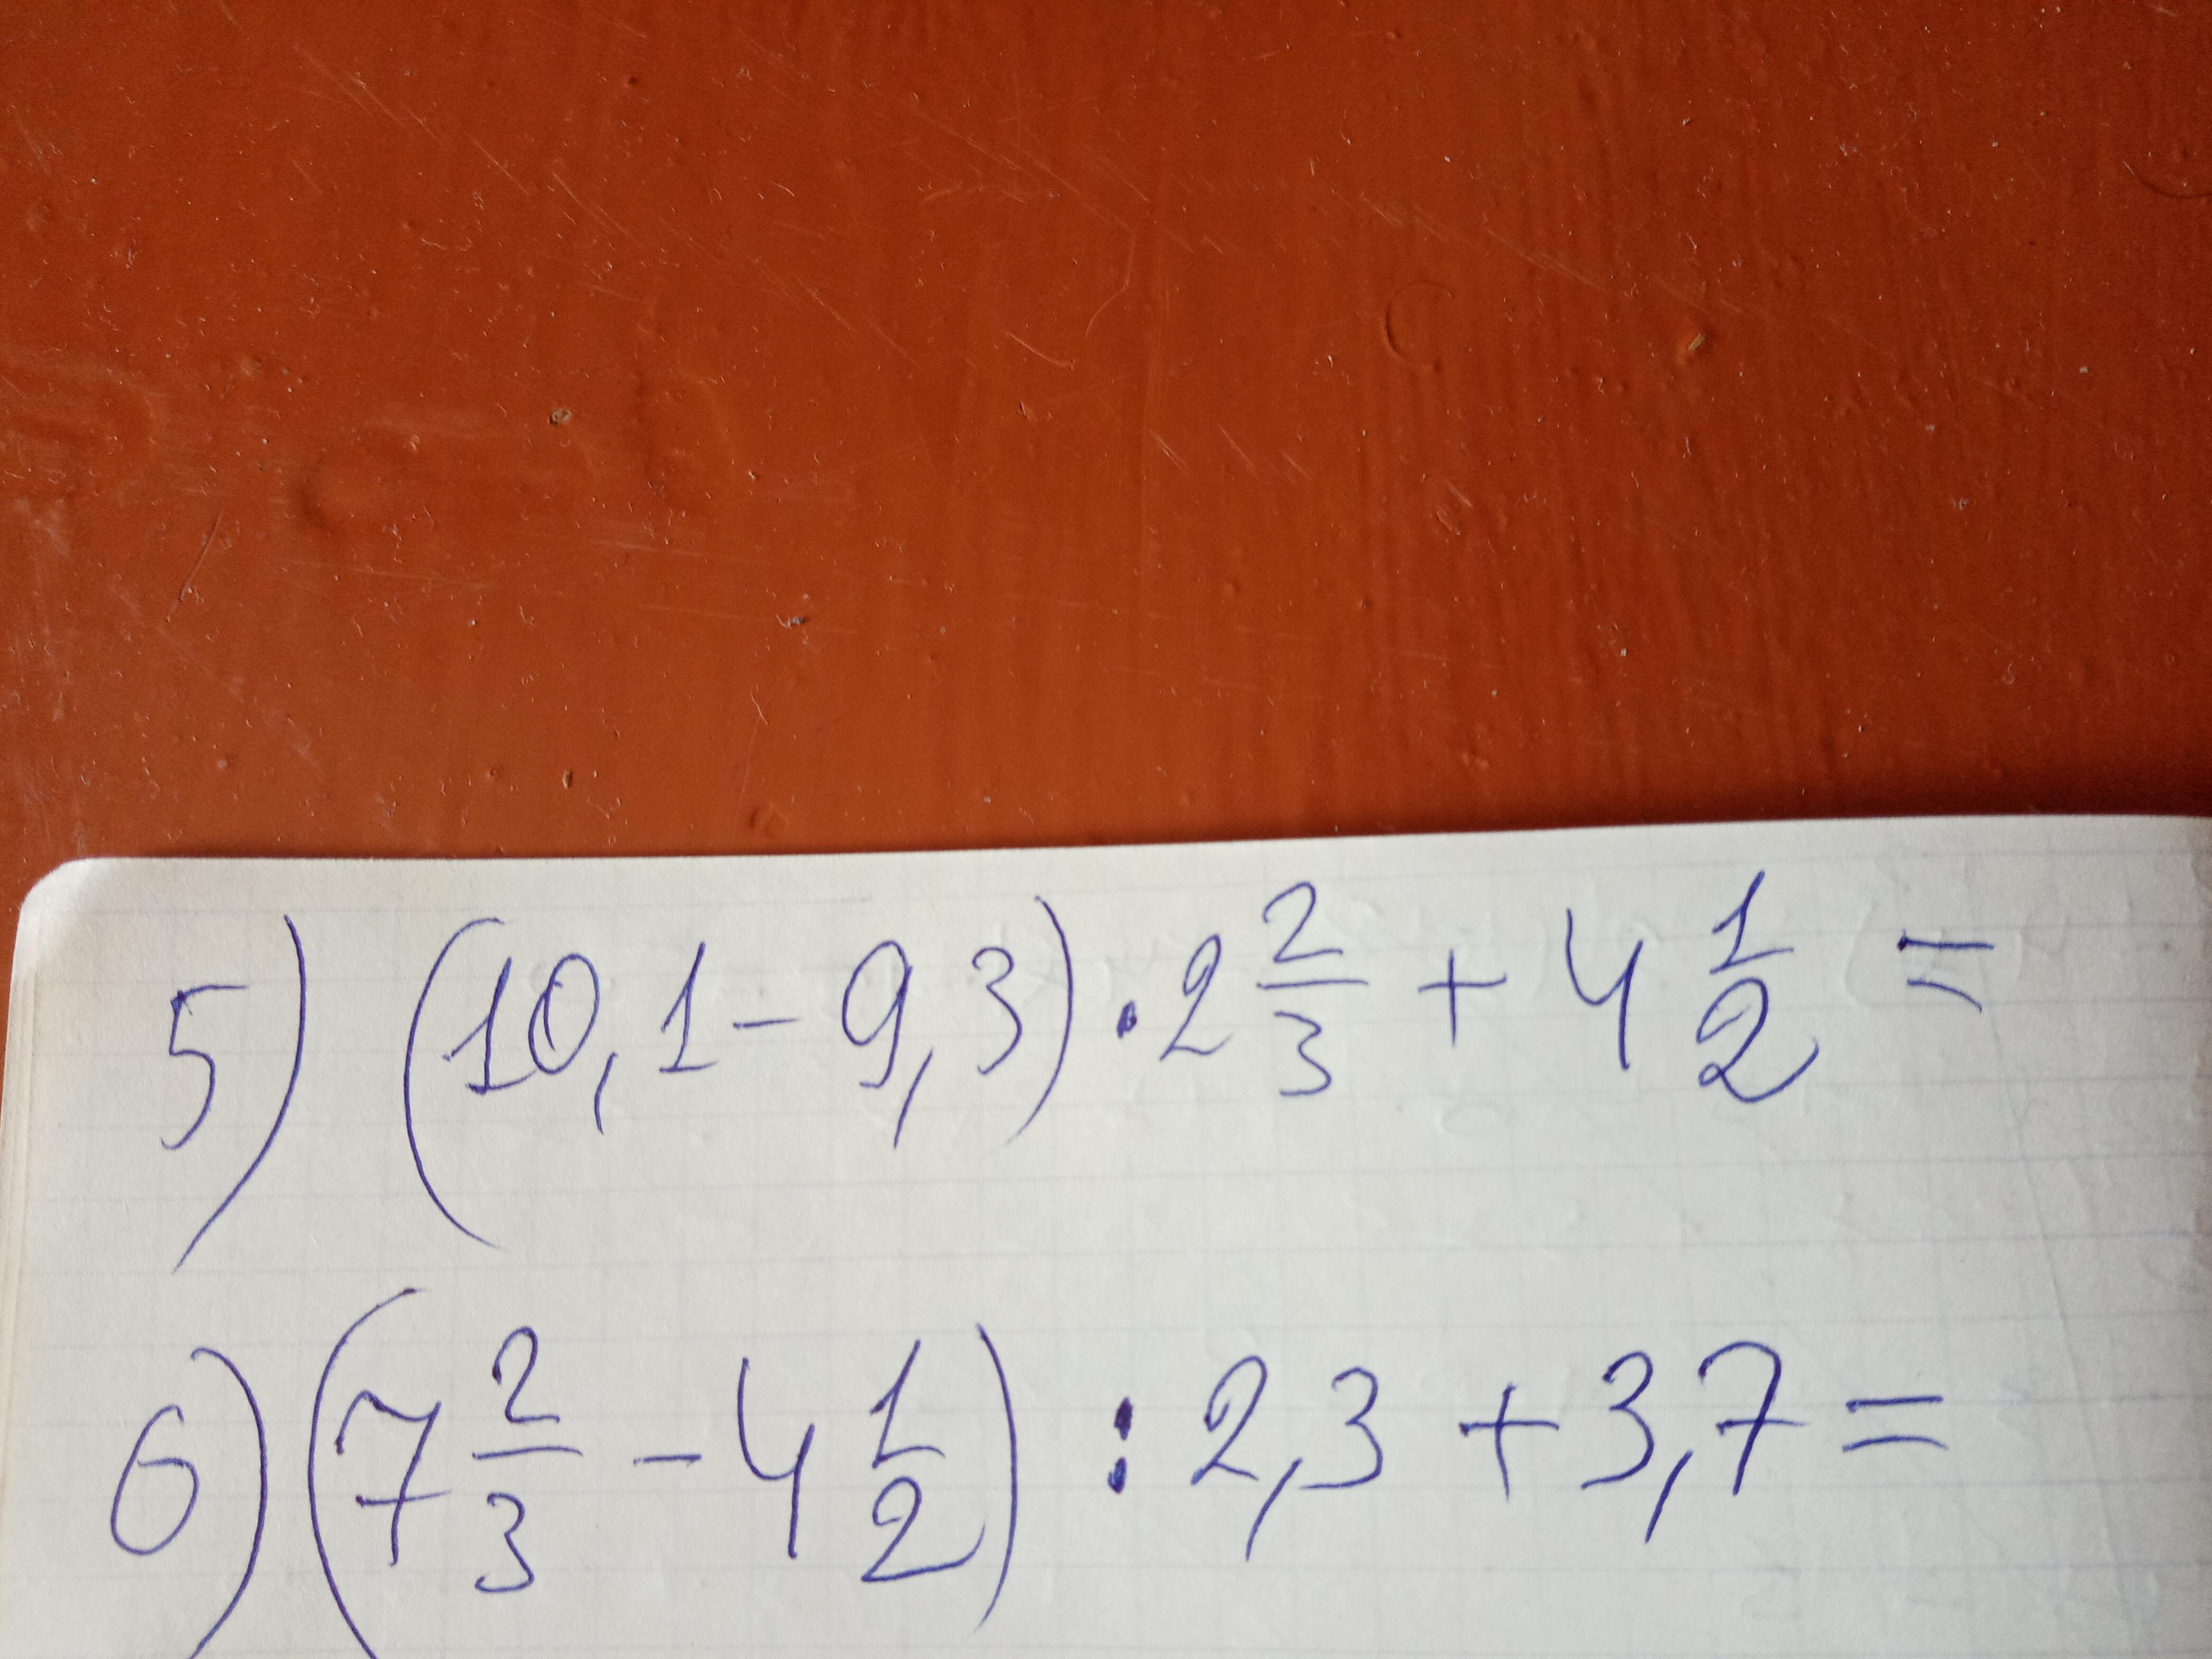 5) (10,1 - 9,3) · 2 2/3 + 4 1/2 =
6) (7 2/3 - 4 1/2) : 2,3 + 3,7 =